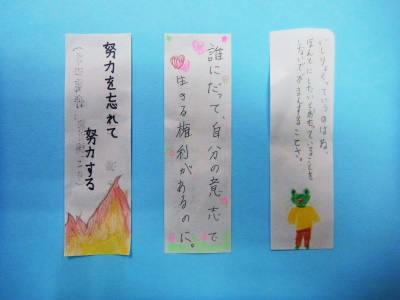 いしりょくっていうのはね、
ほんとにしたいとおもっていることを
しないでがまんすることさ。
誰にだって、自分の意志で
生きる権利があるのに。
努力を忘れて
努力する